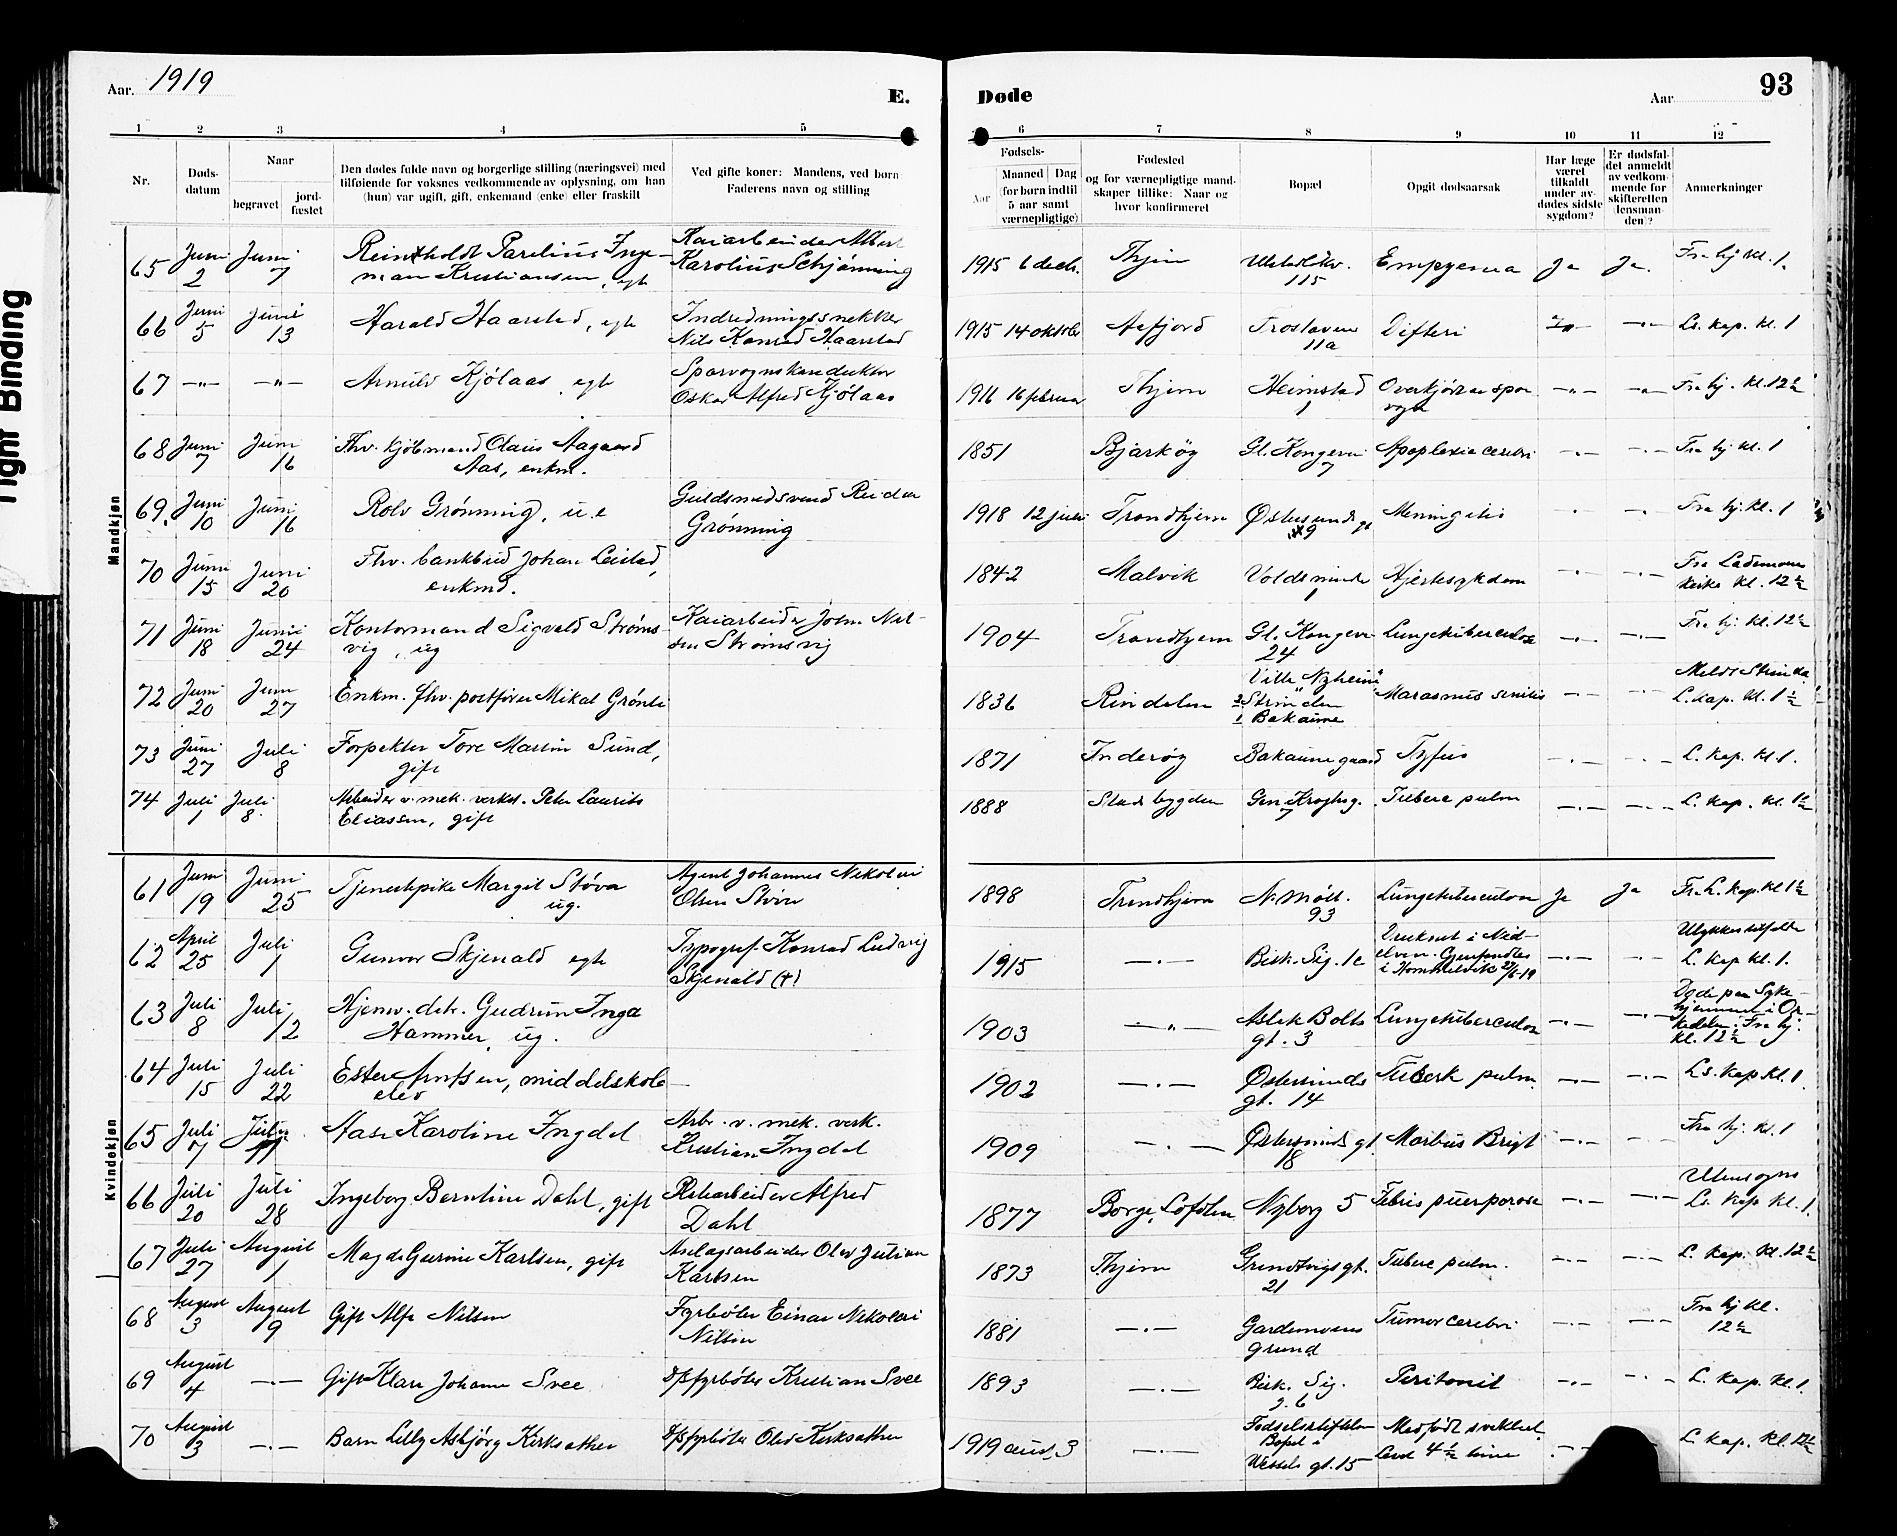 Tight Binding
Aar. 1919
E. Døde
Aar
93
1 2 3 4 5 6 7 8 9 10 11 12
Nr.
Døds-
datum
Naar
begravet
jord-
fæstet
Den dødes fulde navn og borgerlige stilling (næringsvei) med
tilføiende for voksnes vedkommende av oplysning, om han
(hun) var ugift, gift, enkemand (enke) eller fraskilt
Ved gifte koner: Mandens, ved børn
Faderens navn og stilling
Fødsels-
Aar
Maaned Dag
(for børn indtil
5 aar samt
værnepligtige)
Fødested
og for værnepligtige mand-
skaper tillike: Naar og
hvor konfirmeret
Bopæl
Opgit dødsaarsak
Har læge
været
tilkaldt
under av-
dødes sidste
sygdom?
Er dødsfal-
det anmeldt
av vedkom-
mende for
skifteretten
(lensman-
den)?
Anmerkninger
Mandkjøn
65 Juni 2 Juni 7 Kristiansen, egte Karolius Schjønning 1915 6 decb. Thjem 115 Empyema Ja Ja. Fra hj kl. 1.
66 Juni 5 Juni 13 Harald Haarstad, egte Indredningssnekker Nils Konrad Haarstad 1915 14 oktober Aafjord 11a Difteri Ja —„— Ls. kap. kl. 1
67 —„— —„— Arnulv Kjølaas, egte Sporvognskonduktør Oskar Alfred Kjølaas 1916 16 februar Thjem Heimstad 1 —„— —„— Fra hj. kl. 12½
68 Juni 7 Juni 16 Fhv. kjøbmand Olaus Aagaard Aas, enkm. 1851 Bjarkøy Gl. Kongevei 7 Apoplexia cerebri —„— —„— Fra hj kl. 1
69. Juni 10 Juni 16 Rolv Grønning, u.e Guldsmedsvend Reidar Grønning 1918 12 juli Trondhjem Østersunds gt 9 Meningitis —„— —„— Fra hj. kl. 1
70 Juni 15 Juni 20 Fhv. bankbud Johan Leistad, enkmd. 1842 Malvik Voldsminde 1 Hjertesykdom —„— —„— Fra Lademoens kirke kl. 12½
71 Juni 18 Juni 24 Kontormand Sigvald Strøms-
vig, ug Kaiarbeider Johs. Nil-
sen Strømsvig 1904 Trondhjem Gl. Kongevei 24 Lungetuberculose —„— —„— Fra hj. kl. 12½
72 Juni 20 Juni 27 Enkm. fhv. postfører Mikal Grønli 1836 Rindalen Strinden Bakaune Marasmus senilis —„— —„— Meldt Strinda L. kap. kl. 1½
73 Juni 27 Juli 8 Forpakter Tore Martin Sund, gift 1871 Inderøy Bakaune gaard Tyfus —„— —„— L. kap. kl. 1.
74 Juli 1 Juli 8. Arbeider v. mek. verkst. Peter Laurits Eliassen, gift 1888 Stadsbygden Gen. Kroghsg. 7 Tuberc pulm —„— —„— L. kap. kl. 1½
Kvindekjøn
61 Juni 19 Juni 25 Tjenestepike Margit Støvn ug. Agent Johannes Nikolai Olsen Støvn 1898 Trondhjem N. Møll. 93 Lungetuberculose Ja Ja Fr. L. kap. kl 1½
62 April 25 Juli 1 Gunvor Skjenald egte Typograf Konrad Ludvig Skjenald (†) 1915 —„— Bisk. Sig. 1c Druknet i Nid-
elven. Gjenfundet i —„— —„— Ulykkestilfelle L. kap kl. 1.
63 Juli 8 Juli 12 Hjemv. dtr. Gudrun Inga Hammer, ug. 1903 —„— Aslak Bolts gt. 3 Lungetuberculose —„— —„— Døde paa Syke-
hjemmet i Or-
kedalen. Fra hj. kl. 12½
64 Juli 15 Juli 22 Ester Arntsen, middelskole
elev — 1902 —„— Østersunds gt. 14 Tuberk pulm. —„— —„— Ls. kap kl. 1.
65 Juli 7 Juli 11 Aase Karoline Ingdal Arb. v. mek. verk. Kristian Ingdal 1909 —„— Østersunds gt. 18 Morbus Brigt —„— —„— Fra hj. kl. 1
66 Juli 20 Juli 28 Ingeborg Berntine Dahl, gift Alfred Dahl 1877 Borge, Lofoten Nyborg 5 Febris puerperose —„— —„— Utensogns Ls. kap kl. 1.
67 Juli 27 August 1 Magda Gurine Karlsen, gift Anlægsarbeider Olav Julian Karlsen 1873 Thjem Grundtvigs gt. 21 Tuberc pulm. —„— —„— L. kap. kl. 12½
68 August 3 August 9 Gift Alfa Nilsen Fyrbøter Einar Nikolai Nilsen 1881 —„— Gardemoens grund Tumor cerebri —„— —„— Fra hj kl. 12½
69 August 4 —„— Gift Klara Johanne Svee D/S fyrbøter Kristian Svee 1893 —„— Bisk. Sig. g. 6 Peritonit —„— —„— L. kap. kl. 1.
70 August 3 —„— Barn Lilly Asbjørg Kirksæther D/S fyrbøter Olav Kirksæther 1919 aug. 3 —„— Fødselsstiftelsen Bopæl i Wessels gt. 15 Medfødt svakhet Levet 4½ time —„— L. kap. kl. 12½